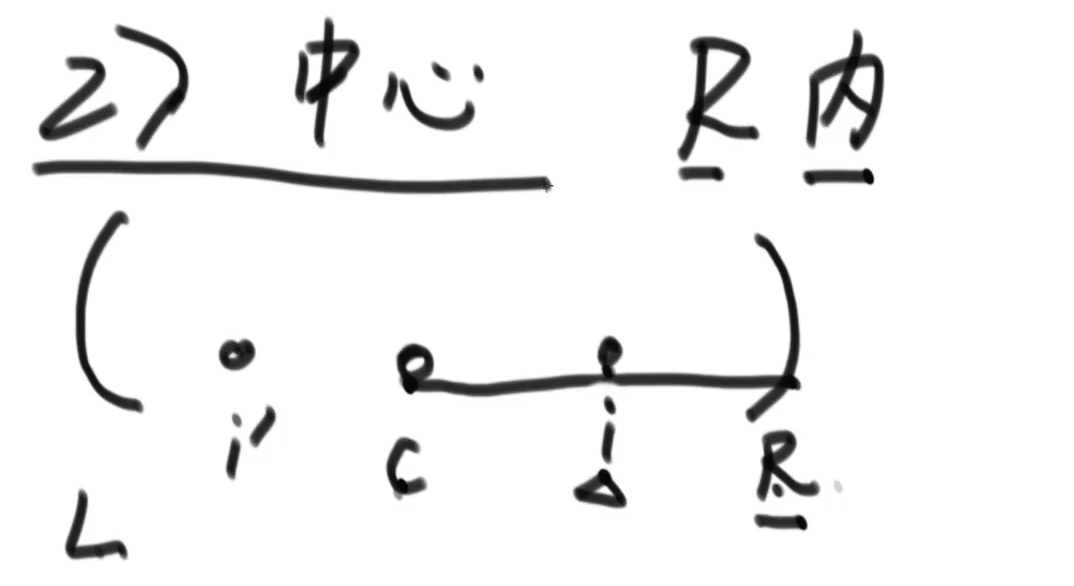 2) 中心 R 内
i' C i R
L